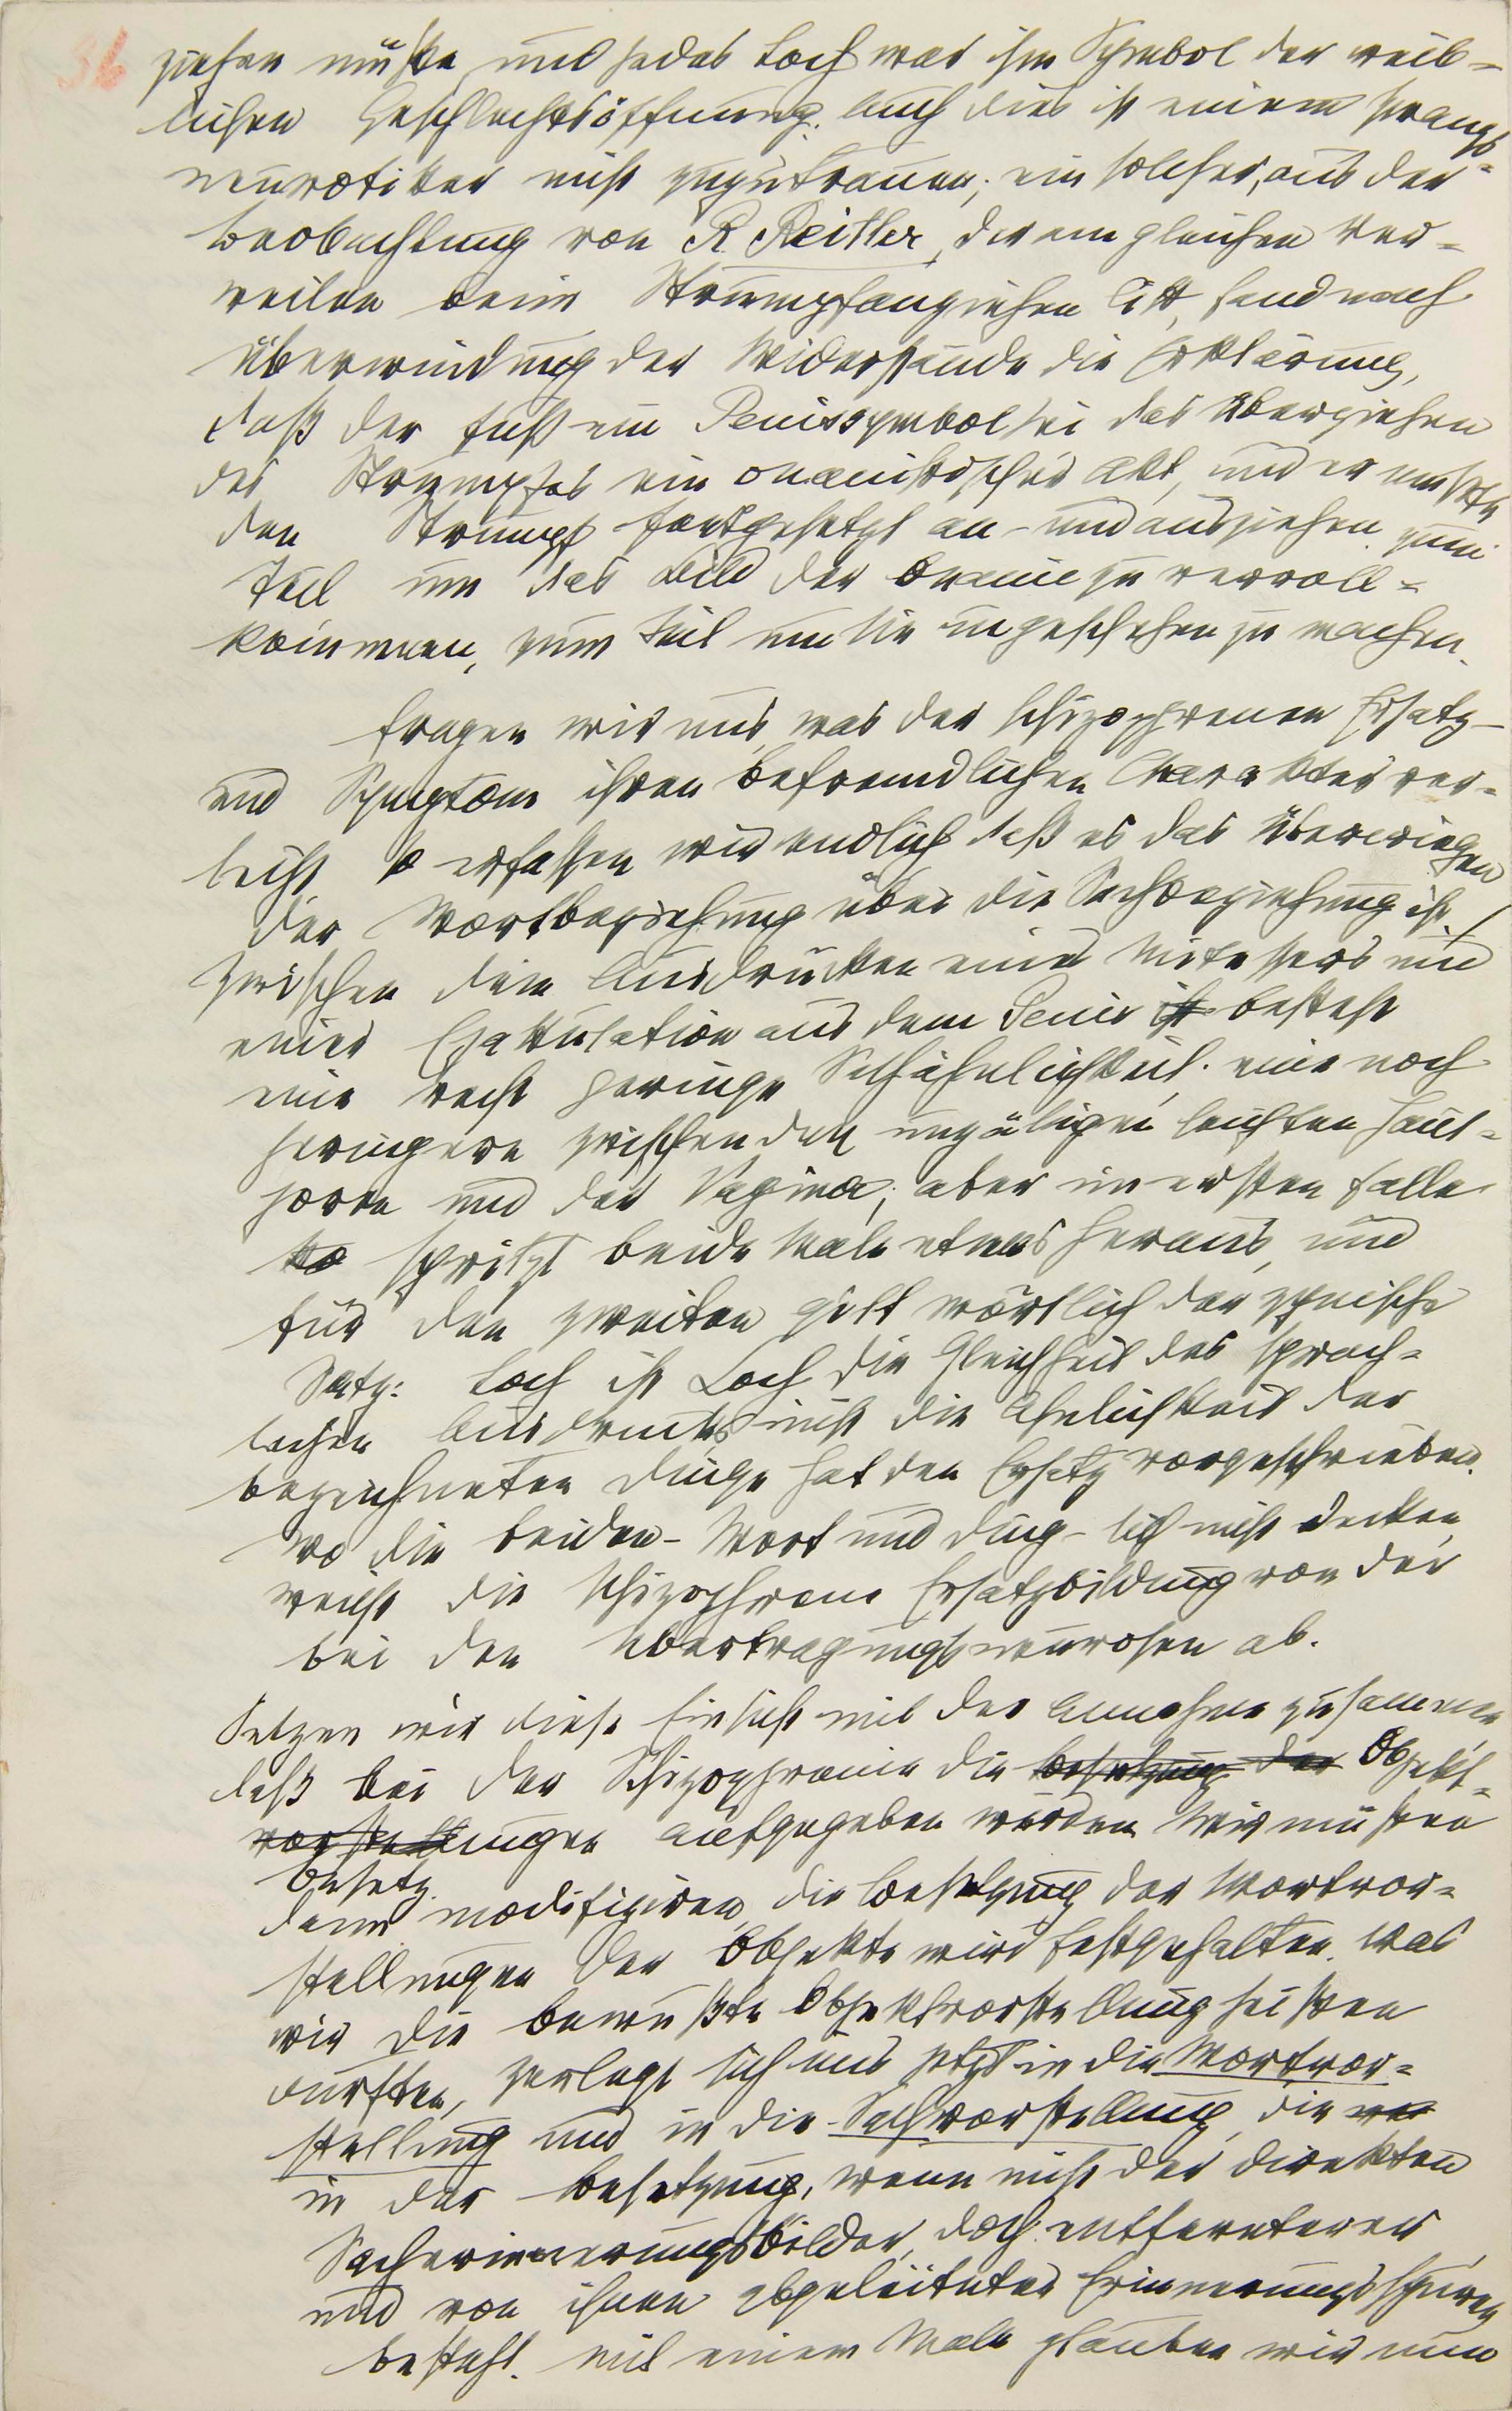 36
ziehen müßte und jedes Loch war ihm Symbol der weib-
lichen Geschlechtsöffnung. Auch dies ist einem Zwangs-
neurotiker nicht zuzutrauen; ein solcher, aus der
Beobachtung von R. Reitler, der am gleichen Ver-
weilen beim Strumpfanziehen litt, fand nach
Überwindung der Widerstände die Erklärung,
daß der Fuß ein Penissymbol sei das Überziehen
des Strumpfes ein onanistischer Akt, und er mußte
den Strumpf fortgesetzt an- und ausziehen zum
Teil um das Bild der Onanie zu vervoll-
kommnen, zum Teil um sie ungeschehen zu machen.
Fragen wir uns, was der schizophrenen Ersatz-
und Symptom ihren befremdlichen Charakter ver-
leiht so erfassen wir endlich daß es das Überwiegen
der Wortbeziehung über die Sachbeziehung ist. /
Zwischen dem Ausdrücken eines Mitessers und
einer Ejakulation aus dem Penis ist besteht
eine recht geringe Sachähnlichkeit. eine noch
geringere zwischen den unzäligen seichten Haut-
poren und der Vagina; aber im ersten Falle
spritzt beide Male etwas heraus, und
für den zweiten gilt wörtlich der zynische
Satz: Loch ist Loch die Gleichheit des sprach-
lichen Ausdrucks nicht die Ähnlichkeit der
bezeichneten Dinge hat den Ersatz vorgeschrieben.
Wo die beiden - Wort und Ding - sich nicht decken
weicht die schizophrene Ersatzbildung von der
bei den Übertragungsneurosen ab.
Setzen wir diese Einsicht mit der Annahme zusammen
daß bei der Schizophrenie die Besetzung der Objekt-
vorstellungen aufgegeben würden Wir müssen
Besetz.
dann modifiziren, die Besetzung der Wortvor-
stellungen der Objekte wird festgehalten. Was
wir die bewußte Objektvorstellung heißen
durften, zerlegt sich uns jetzt in die Wortvor-
stellung und in die Sachvorstellung, die
in der Besetzung, wenn nicht der direkten
Sacherinnerungsbilder, doch entfernterer
und von ihnen abgeleiteter Erinnerungsspuren
besteht. Mit einem Male glauben wir nun